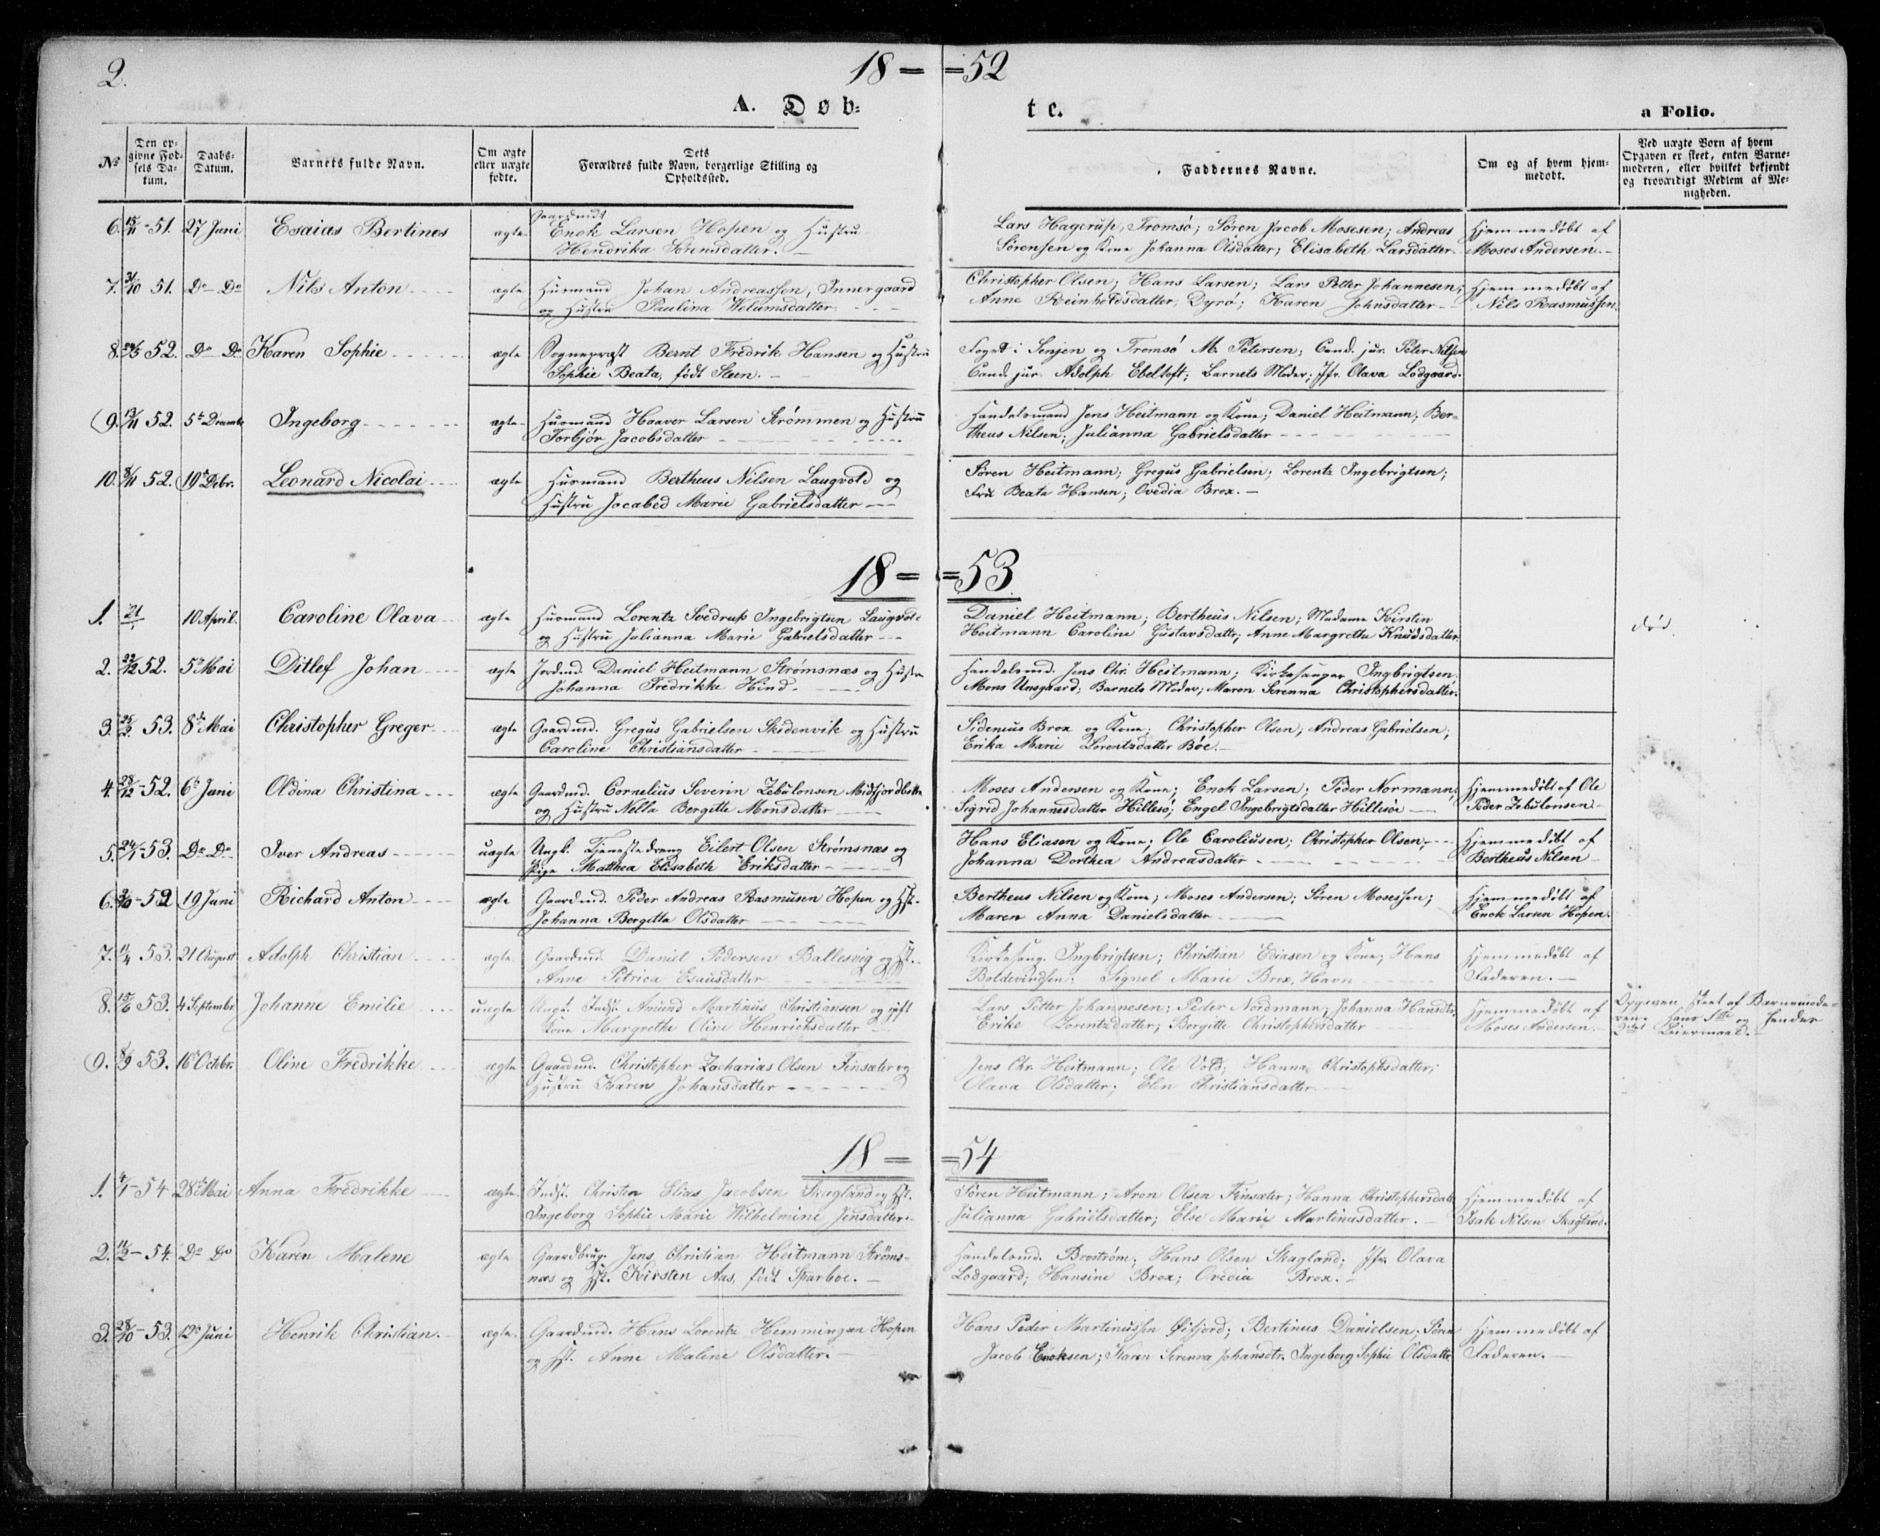 2.
18 = = 52
A. Døb= te. a Folio.
No
Den opgivne Fødsels Datum.
Daabs-Datum.
Barnets fulde Navn.
Om ægte eller uægte fødte.
Dets Forældres fulde Navn, borgerlige Stilling og Opholdssted.
Faddernes Navne.
Om og af hvem hjemmedøbt.
Ved uægte Born af hvem Opgaven er skeet, enten Barnemoderen, eller hvilket bekjendt og troværdigt Medlem af Menigheden.
6. 15/11 - 51. 27 Juni Esaias Bertines ægte Gaardmd. Enok Larsen Hopen og Hustru Lars Hagerup, Tromsø; Søren Jacob Mosesen; Andreas Hjemmedøbt af
Hendrika Sørensdatter. Sørensen og Kone Johanna Olsdatter; Elisabeth Larsdatter Moses Andersen.
7. 31/10 51. Do Do Nils Anton ægte Huusmand Johan Andreassen, Innergaard Christopher Olsen; Hans Larsen; Lars Petter Johannesen; Hjemmedøbt af
og Hustru Paulina Welumsdatter Anne Reinholdsdatter, Dyrø; Karen Johnsdatter Nils Rasmussen.
8. 24/5 52. Do Do Karen Sophie ægte Sognepræst Bernt Fredrik Hansen og Hustru Foged i Senjen og Tromsø M. Petersen; Cand. jur. Peter Nilsen
Sophie Beata, født Steen. Cand. jur. Adolph Ebeltoft; Barnets Moder; Jfr. Olava Lodgaard.
9. 13/11 52. 5te Decembr Ingeborg ægte Huusmand Haaver Larsen Strømmen og Hustru Handelsmand Jens Heitmann og Kone; Daniel Heitmann, Ber-
Torbjør Jacobsdatter theus Nilsen; Julianna Gabrielsdatter
10. 8/11 52. 19de Debr. Leonard Nicolai ægte Huusmand Bertheus Nilsen Laugvold og Søren Heitmann; Gregus Gabrielsen; Lorentz Ingebrigtsen;
Hustru Jacabed Marie Gabrielsdatter Fru Beata Hansen; Ovedia Brox.
18 = = 53.
1. 21/1 10 April. Caroline Olava ægte Huusmand Lorentz Svedrup Ingebrigtsen Laugvold Daniel Heitmann; Bertheus Nilsen; Madame Kirsten død.
og Hustru Julianna Marie Gabrielsdatter Heitmann Caroline Gustavsdattr; Anne Margrethe Knudsdatter
2. 22/12 52. 5te Mai Ditlef Johan ægte Jordmd. Daniel Heitmann Strømsnæs og Hustru Handelsmd. Jens Chr. Heitmann; Kirkesanger Ingbrigtsen
Johanna Fredrikke Hind. Mons Unsgaard; Barnets Moder; Maren Sørenna Christophersdatter.
3. 25/3 53. 8de Mai Christopher Greger ægte Gaardmd. Gregus Gabrielsen Skidenvik og Hustru Sidenius Brox og Kone; Christopher Olsen; Andreas Gabrielsen;
Caroline Christiansdatter Erika Marie Lorentzdatter Bøe.
4. 28/12 - 52. 6te Juni Oldina Christina ægte Gaardmd. Cornelius Severin Zebulonsen Midtfjordbotten Moses Andersen og Kone; Enok Larsen; Peder Normann; Hjemmedøbt af Ole
og Hustru Nella Bergitte Monsdatter Sigrid Johannesdatter Hillesø; Engel Ingebrigtsdatter Hillesøe Peder Zebulonsen
5. 24/1 53. Do Do Iver Andreas uægte Ungk. Tjenestedreng Eilert Olsen Strømsnæs og Hans Eliasen og Kone; Ole Caroliusen; Christopher Olsen; Hjemmedøbt af
Pige Matthea Elisabeth Eriksdatter Johanna Dorthea Andreasdatter Bertheus Nilsen
6. 3/10 - 52 19 Juni Richard Anton ægte Gaardmd. Peder Andreas Rasmusen Hopen og Hst. Bertheus Nilsen og Kone; Moses Andersen; Søren Mosessen; Hjemmedøbt af
Johanna Bergitta Olsdatter Maren Anna Danielsdatter Enok Larsen Hopen.
7. 11/4 53. 21 August Adolph Christian ægte Gaardmd. Daniel Pedersen Ballesvig og Hst. Kirkesang. Ingbrigtsen; Christian Ediasen og Kone; Hans Hjemmedøbt af
Anne Petrica Esausdatter Boldevindsen; Signel Marie Brox, Havn Faderen.
8. 15/6 53. 4 Septembr Johanne Emilie uægte Ungk. Inds. Amund Martinus Christiansen og gift Lars Petter Johannesen; Peder Nordmann; Johanna Hansdtr Hjemmedøbt af Opgaven skeet af Barnemode-
Kone Margrethe Oline Henrichsdatter Erike Lorentzdatter; Bergitte Christophersdatter Moses Andersen. ren.
9. 8/9 53. 16 Octobr. Oline Fredrikke ægte Gaardmd. Christopher Zacharias Olsen Finsæter og Jens Chr. Heitmann; Ole Vold; Hanna Christophsdatter;
Hustru Karen Johansdatter Olava Olsdatter; Elen Christiansdatter
18 = = 54
1. 4/1 - 54 28de Mai Anna Fredrikke ægte Inds. Christen Elias Jacobsen Skagland og Hst. Søren Heitmann; Aron Olsen Finsæter; Hanna Christophersdatr Hjemmedøbt af
Ingeborg Sophie Marie Wilhelmine Jensdatter Julianna Gabrielsdatter; Else Marie Martinusdatter. Isak Nilsen Skagland.
2. - 54. Do Do Karen Malene ægte Gaardbrug. Jens Christian Heitmann Strøms- Handelsmd. Brostrøm; Hans Olsen Skagland; Jfr. Olava
næs og Hst. Kirsten Aas, født Sparboe. Lodgaard; Hansine Brox; Ovedia Brox.
3. 28/10 - 53. 12te Juni Henrik Christian. ægte Gaardmd. Hans Lorentz Hemmingsen Hopen Hans Peder Martinussen Øifjord; Bertinus Danielsen; Søren Hjemmedøbt af
og Hst. Anne Malene Olsdatter. Jacob Enoksen; Karen Serenna Johansdtr. Ingeborg Sophie Olsdatter Faderen.